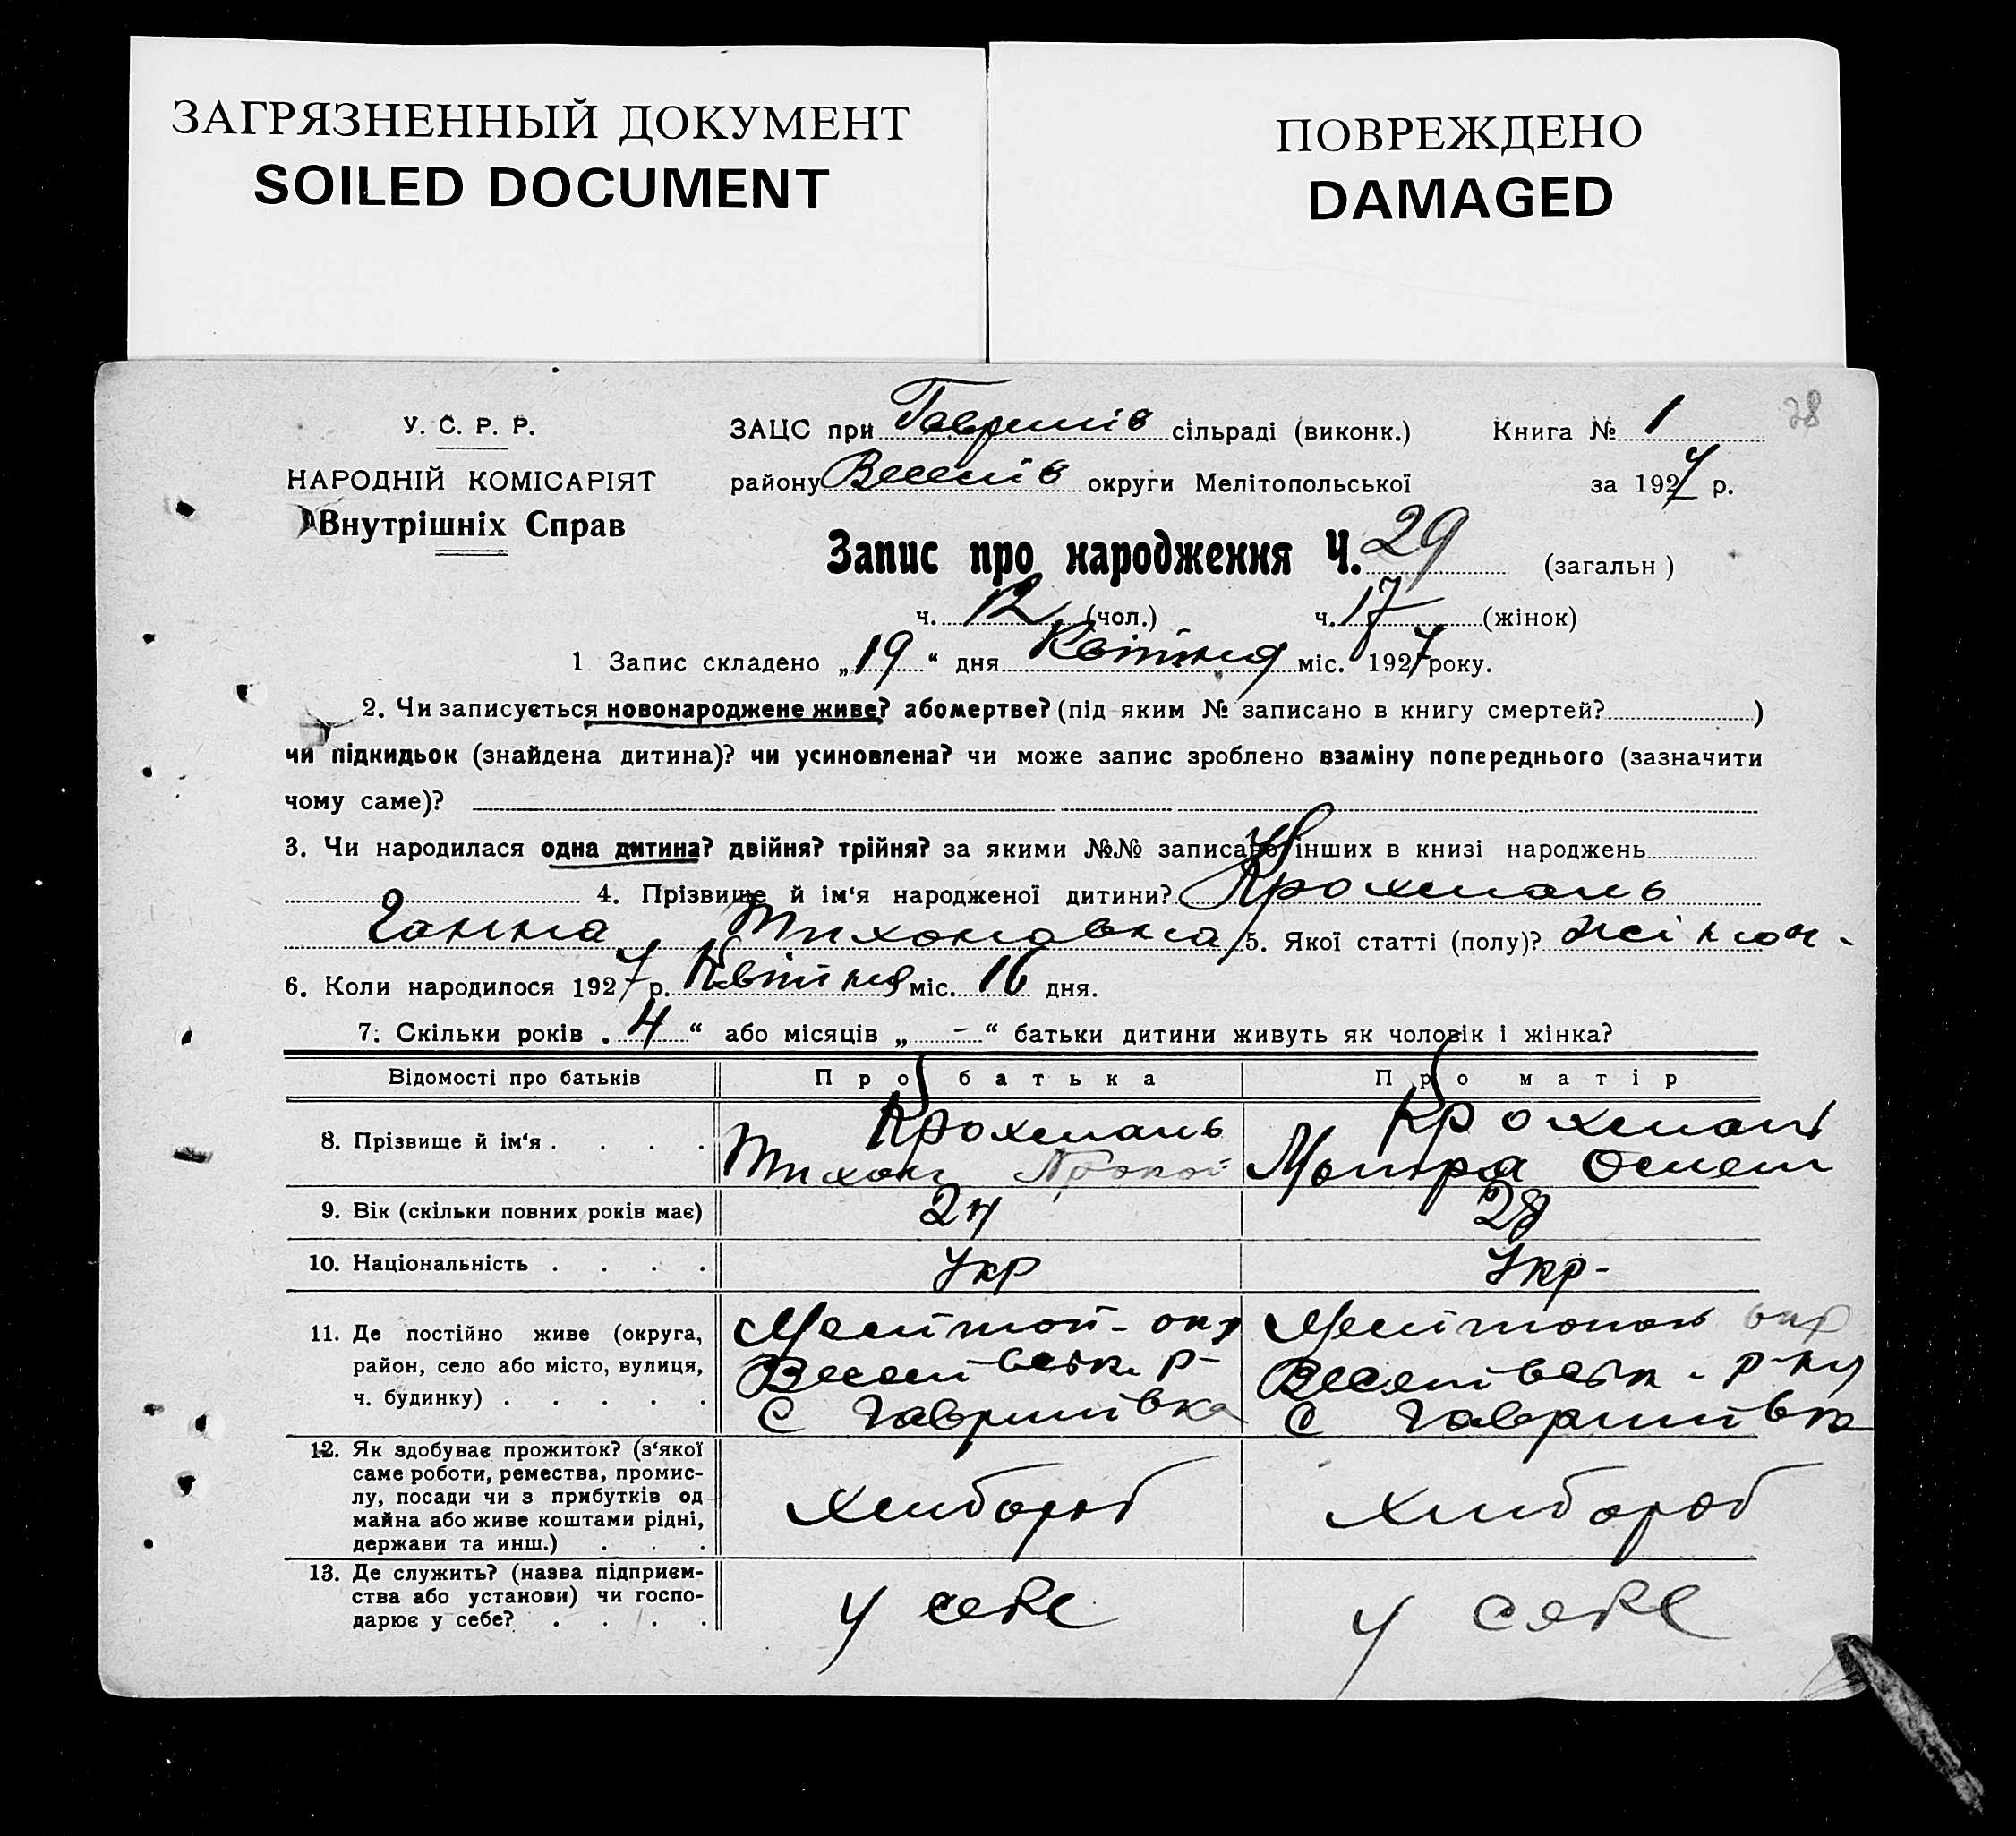 ЗАГРЯЗНЕННЫЙ ДОКУМЕНТ
SOILED DOCUMENT
ПОВРЕЖДЕНО
DAMAGED
28
У. С. Р. Р.
НАРОДНІЙ КОМІСАРІЯТ
Внутрішніх Справ
ЗАЦС при Гаврилів сільраді (виконк.) Книга № 1
району Веселів округи Мелітопольської за 1927 р.
Запис про народження Ч. 29 (загальн)
ч. 12 (чол.) ч. 17 (жінок)
1 Запис складено „19“ дня Квітня міс. 1927 року.
2. Чи записується новонароджене живе? або мертве? (під яким № записано в книгу смертей? )
чи підкидьок (знайдена дитина)? чи усиновлена? чи може запис зроблено взаміну попереднього (зазначити
чому саме)?
3. Чи народилася одна дитина? двійня? трійня? за якими №№ записано інших в книзі народжень
4. Прізвище й ім‘я народженої дитини? Крохмаль
Ганна Тихоновна 5. Якої статті (полу)? жіноч.
6. Коли народилося 1927 р. Квітня міс. 16 дня.
7. Скільки років „4“ або місяців „-“ батьки дитини живуть як чоловік і жінка?
Відомості про батьків Про батька Про матір
8. Прізвище й ім‘я . . . . Крохмаль Крохмаль
Тихон Прокоп Мотря
9. Вік (скільки повних років має) 24 28
10. Національність . . . . Укр Укр-
11. Де постійно живе (округа, район, село або місто, вулиця, ч. будинку) . . . . .
Мелітоп- окр
Веселівськ. р-
С Гаврилівка
Мелітополь окр
Веселівськ. р-ну
С Гаврилівка
12. Як здобуває прожиток? (з‘якої
саме роботи, ремества, промис-
лу, посади чи з прибутків од
майна або живе коштами рідні,
держави та инш.) . . .
Хлібороб
Хлібороб
13. Де служить? (назва підприєм-
ства або установи) чи госпо-
дарює у себе? . . . .
У себе
У себе